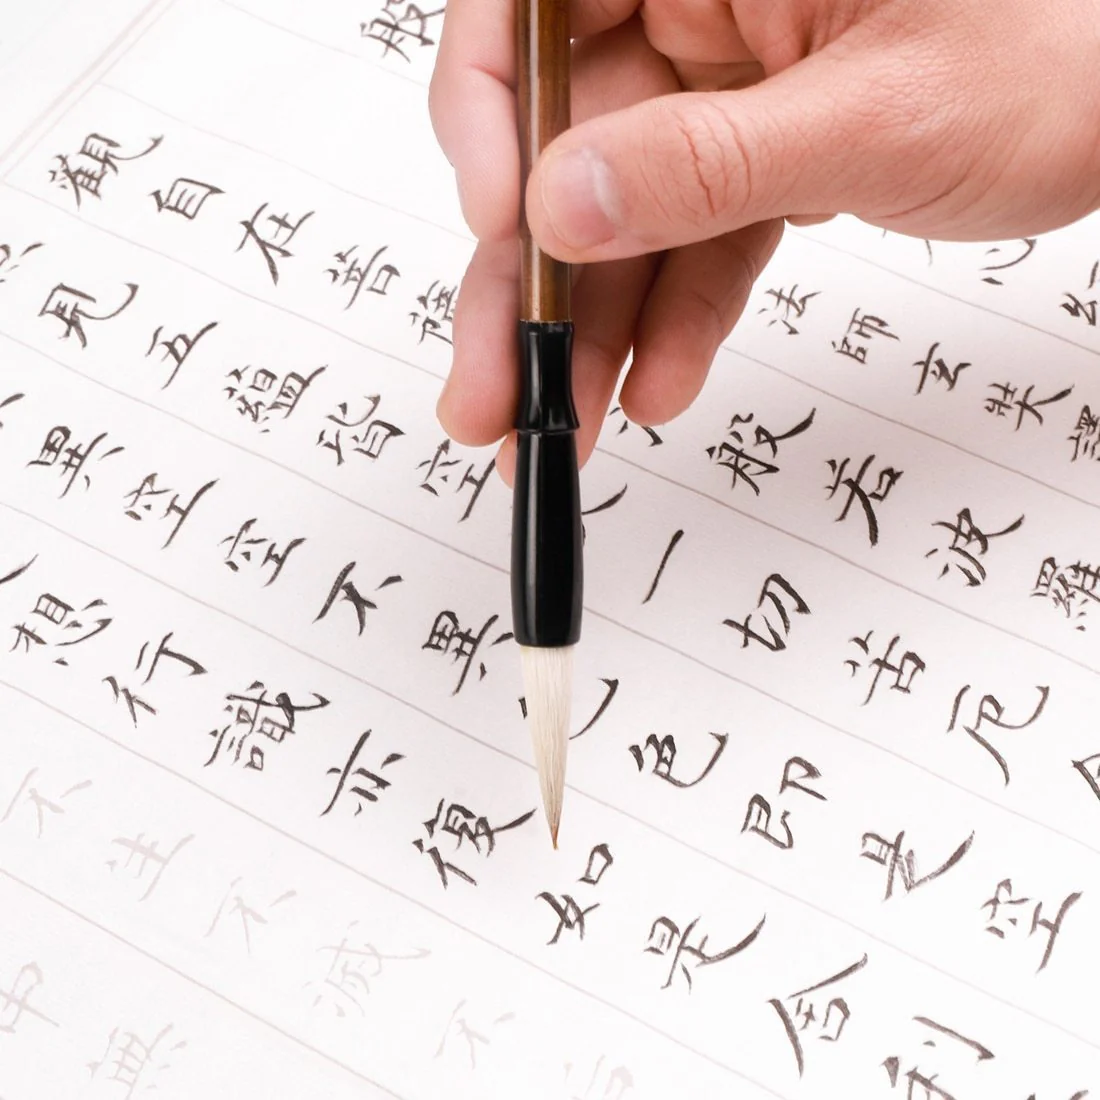 般心
法師玄奘譯
觀自在菩薩般若波羅
見五蘊皆空一切苦厄
異空空不異色即是空
想行識亦復如是舍利
不生不滅不
中無